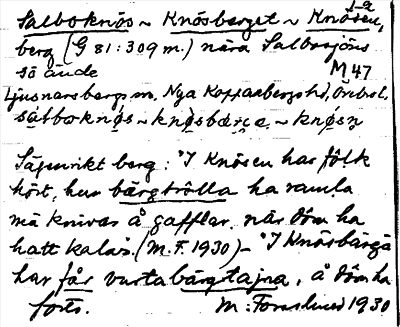 1-a
Salboknös ~ Knösberget ~ Knösen,
berg (G 81:309 m.) nära Salbosjöns
sö ände M 47
Ljusnarsbergs sn, Nya Kopparbergs hd, Örebro l.
Sägenrikt berg: "I Knösen har fôlk
hört, hur bärgtrôlla ha ramla
mä knivar å gafflar, när dôm ha
hatt kalas. (M.F. 1930) – "I Knösbärgä
har får vurta bärgtajna, å dôm ha
forts. M: Forslund 1930